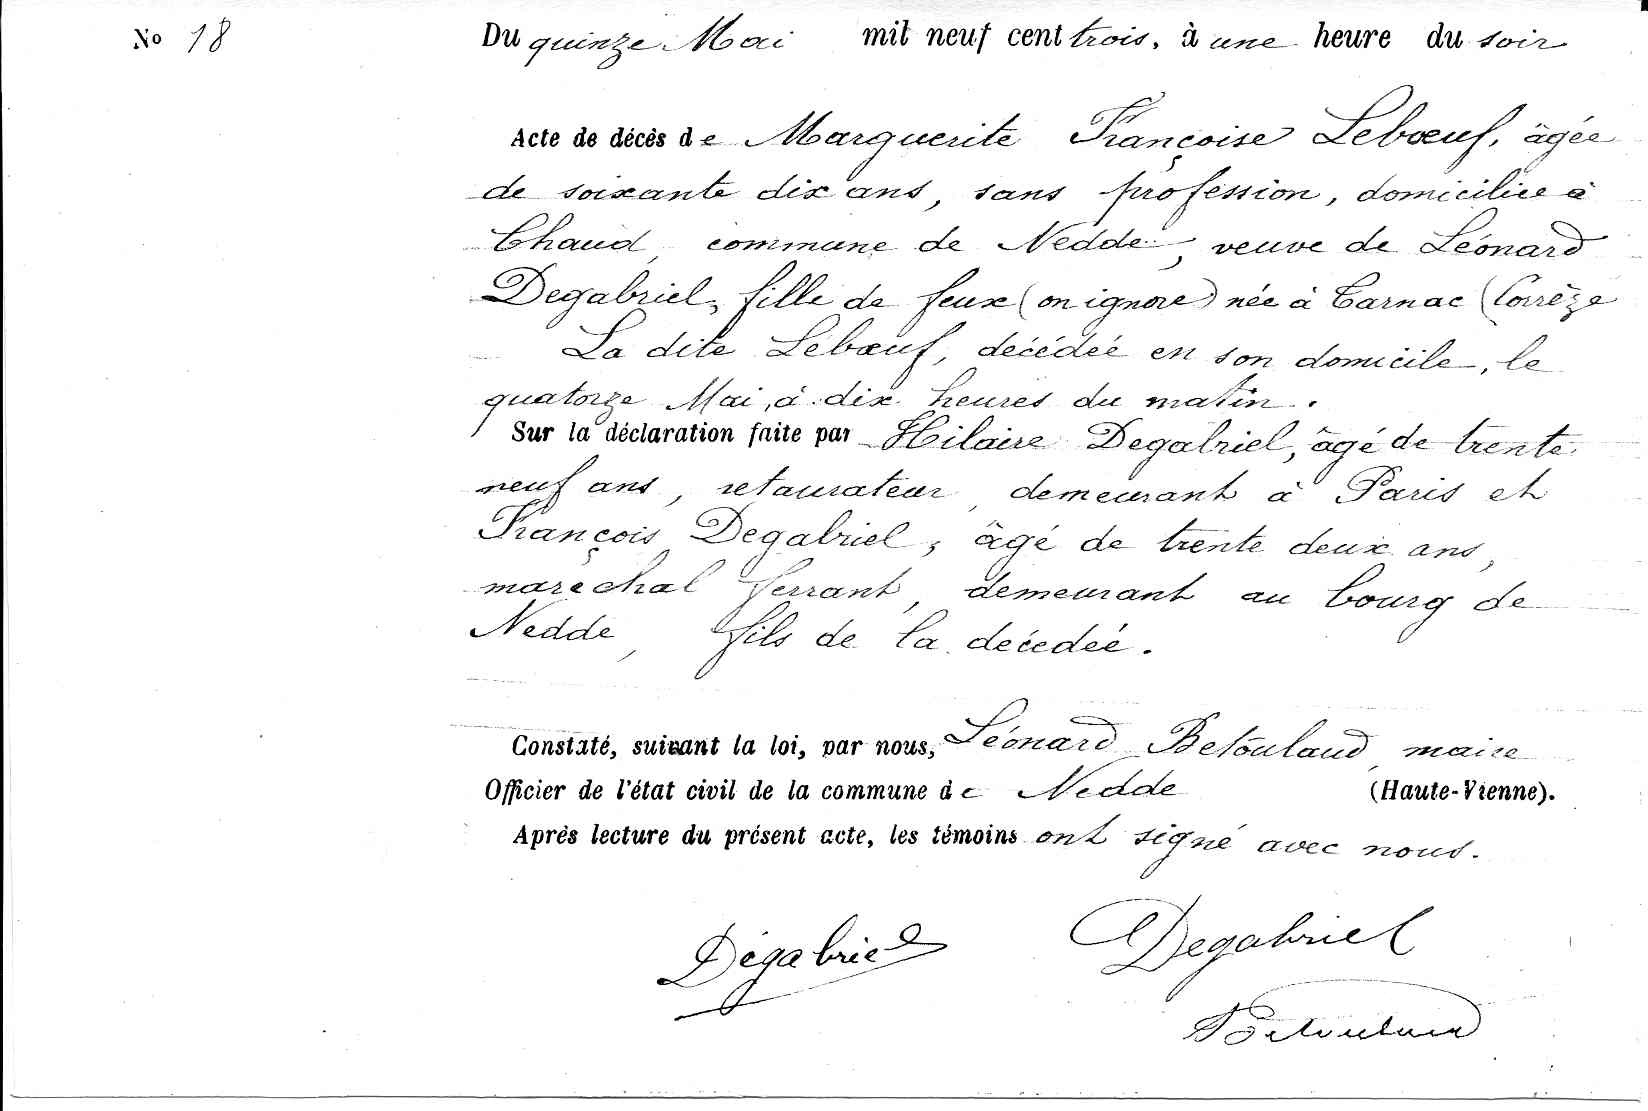 No 18
Du quinze Mai mil neuf cent trois, à une heure du soir
Acte de décès de Marguerite Françoise Lebœuf, âgée
de soixante dix ans, sans profession, domiciliée à
Chaud, commune de Nedde, veuve de Léonard
Degabriel, fille de feux (on ignore) née à Tarnac (Corrèze
La dite Lebœuf, décédée en son domicile, le
quatorze Mai, à dix heures du matin.
Sur la déclaration faite par Hilaire Degabriel, âgé de trente
neuf ans, retaurateur, demeurant à Paris et
François Degabriel, âgé de trente deux ans,
maréchal ferrant, demeurant au bourg de
Nedde, fils de la décédée.
Constaté, suivant la loi, par nous, Léonard Betoulaud, maire
Officier de l'état civil de la commune de Nedde (Haute-Vienne).
Après lecture du présent acte, les témoins ont signé avec nous.
Dégabriel Degabriel
Betoulaud